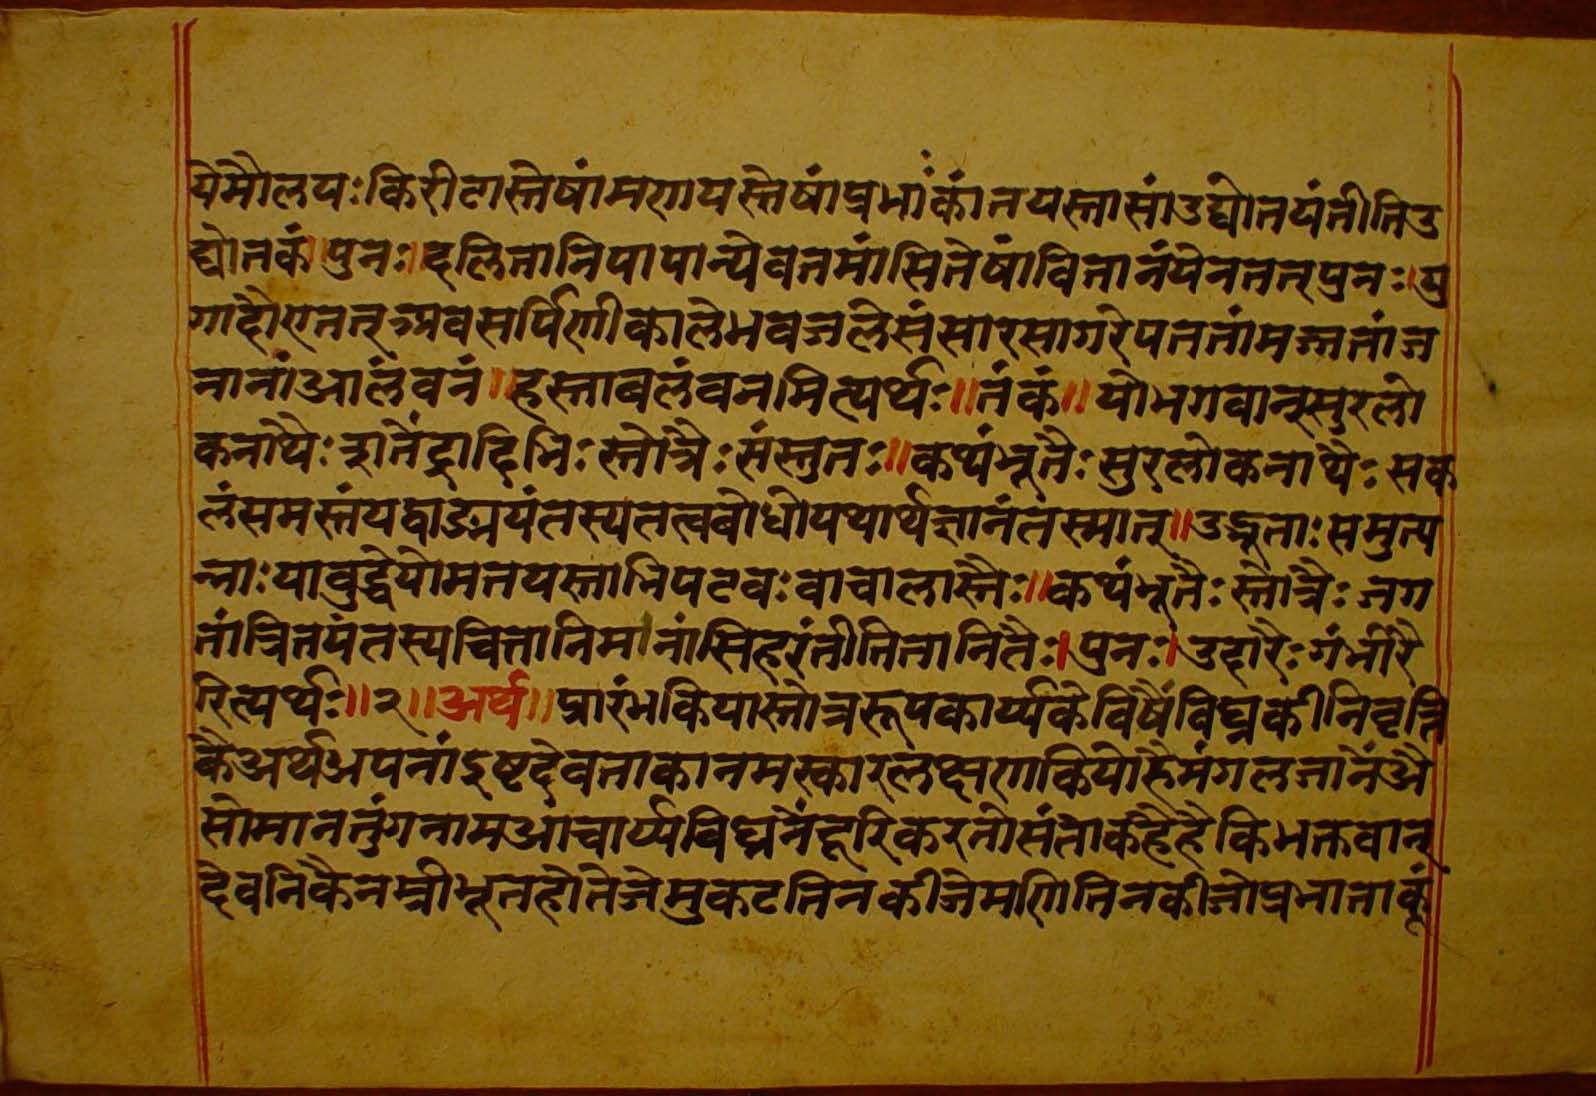 येमौलयःकिरीटास्तेषांमणयस्तेषांप्रभाःकांतयस्तासांउद्योतयंतीतिउ
द्योतकं॥पुनः॥दलितानिपापान्येवतमांसितेषांवितानंयेनतत्पुनः।यु
गादौएतत्अवसर्पिणीकालेभवजलेसंसारसागरेपततांमज्जतांज
नानांआलंवनं॥हस्तावलंवनमित्यर्थः॥तंकं॥योभगवान्सुरलो
कनाथैःशतेंद्रादिभिःस्तोत्रैःसंस्तुतः॥कथंभूतैःसुरलोकनाथैःसक
लंसमस्तंयद्वाङ्मयंतस्यतत्वबोधोयथार्थज्ञानंतस्मात्॥उद्भूताःसमुत्प
न्नाःयावुद्धेयोमतयस्ताभिपटवःवाचालास्तैः॥कथंभूतैःस्तोत्रैःजग
तांत्रितयंतस्यचित्तानिमानांसिहरंतीतितानितैः।पुनः।उदारैःगंभीरै
रित्यर्थः॥२॥अर्थ॥प्रारंभकियास्तोत्ररूपकार्य्यकेविषैंविघ्नकीनिवृत्ति
कैअर्थअपनांइष्टदेवताकानमस्कारलक्षणकियोहैमंगलजानेंअै
सोमानतुंगनामआचार्य्यविघ्ननैंदूरिकरतोसंताकहैहैकिभक्तवान्
देवनिकैनम्रीभूतहोतेजेमुकटतिनकीजेमणितिनकीजोप्रभाताकूं